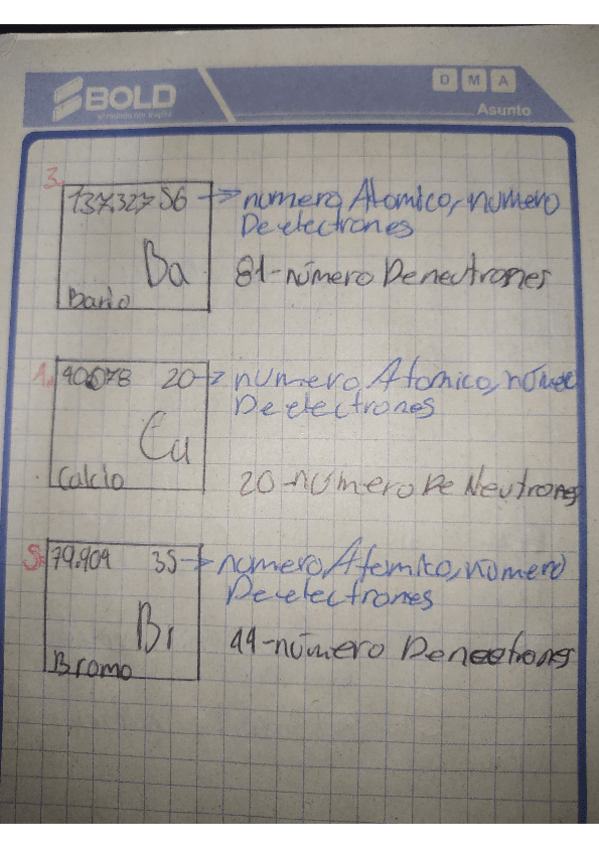 BOLD
D M A
Asunto
3.
137.327 56 → numero Atomico, numero
De electrones
Ba
81-número De neutrones
Bario
1.
40.078 20 → numero Atomico, númeo
De electrones
Ca
Calcio
20-número De Neutrones
5.
79.904 35 → numero Atomico, número
De electrones
Br
44-número De neetrones
Bromo